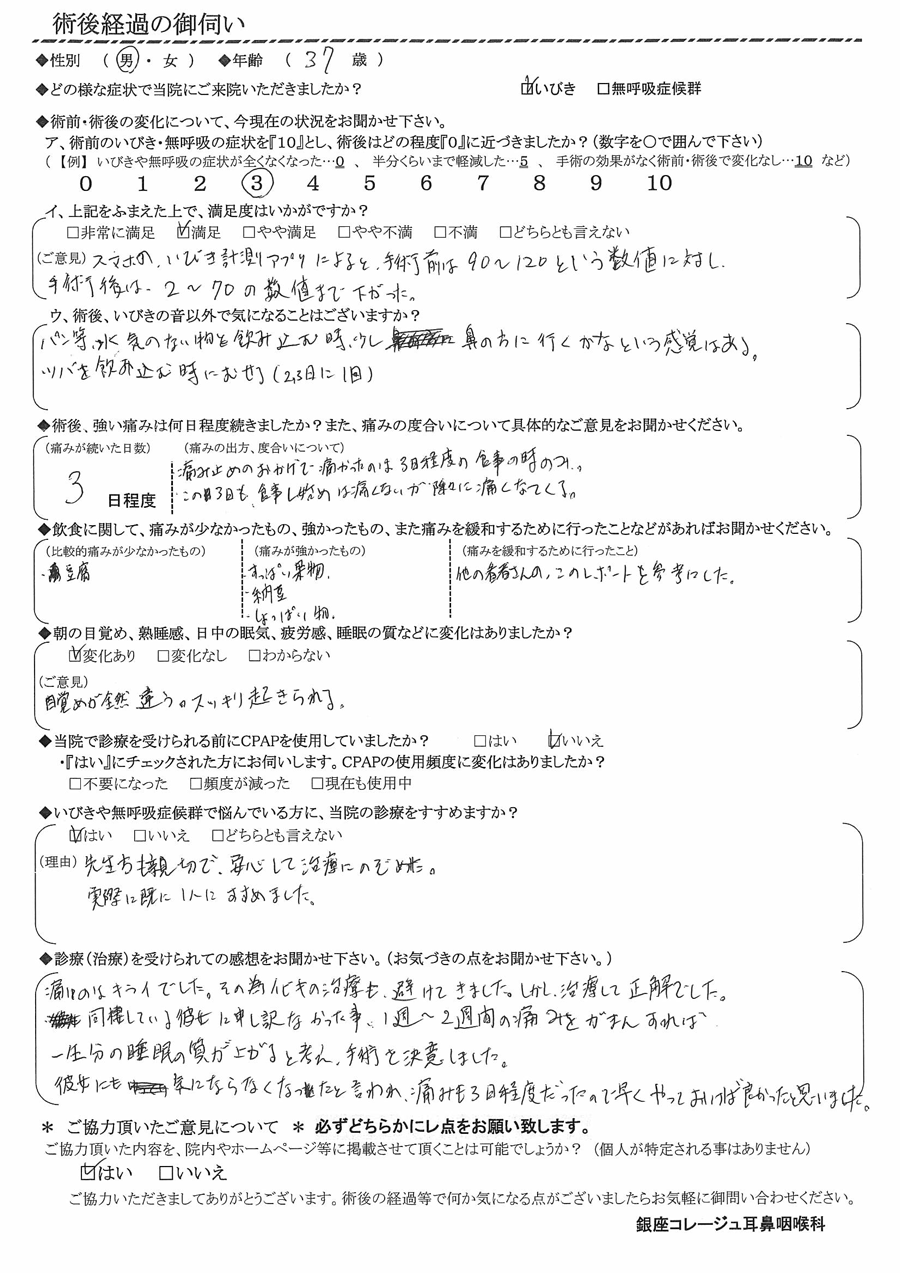 術後経過の御伺い
◆性別 ( 男 ・ 女 ) ◆年齢 ( 37 歳 )
◆どの様な症状で当院にご来院いただきましたか? ☑いびき □無呼吸症候群
◆術前・術後の変化について、今現在の状況をお聞かせ下さい。
ア、術前のいびき・無呼吸の症状を『10』とし、術後はどの程度『0』に近づきましたか?(数字を〇で囲んで下さい)
(【例】いびきや無呼吸の症状が全くなくなった…0 、 半分くらいまで軽減した…5 、 手術の効果がなく術前・術後で変化なし…10 など)
0 1 2 3 4 5 6 7 8 9 10
イ、上記をふまえた上で、満足度はいかがですか?
□非常に満足 ☑満足 □やや満足 □やや不満 □不満 □どちらとも言えない
(ご意見) スマホの、いびき計測アプリによると、手術前は90〜120という数値に対し、
手術後は、2〜70の数値まで下がった。
ウ、術後、いびきの音以外で気になることはございますか?
パン等、水気のない物を飲み込む時、少し 鼻の方に行くかなという感覚はある。
ツバを飲み込む時にむせる(2,3日に1回)
◆術後、強い痛みは何日程度続きましたか?また、痛みの度合いについて具体的なご意見をお聞かせください。
(痛みが続いた日数) (痛みの出方、度合いについて)
3 日程度
・痛み止めのおかげで痛かったのは3日程度の食事の時のみ。
・この3日も、食事し始めは痛くないが徐々に痛くなってくる。
◆飲食に関して、痛みが少なかったもの、強かったもの、また痛みを緩和するために行ったことなどがあればお聞かせください。
(比較的痛みが少なかったもの) (痛みが強かったもの) (痛みを緩和するために行ったこと)
・豆腐 ・すっぱい果物、 他の患者さんの、このレポートを参考にした。
・納豆
・しょっぱい物、
◆朝の目覚め、熟睡感、日中の眠気、疲労感、睡眠の質などに変化はありましたか?
☑変化あり □変化なし □わからない
(ご意見)
目覚めが全然違う。スッキリ起きられる。
◆当院で診療を受けられる前にCPAPを使用していましたか? □はい ☑いいえ
・『はい』にチェックされた方にお伺いします。CPAPの使用頻度に変化はありましたか?
□不要になった □頻度が減った □現在も使用中
◆いびきや無呼吸症候群で悩んでいる方に、当院の診療をすすめますか?
☑はい □いいえ □どちらとも言えない
(理由) 先生方も親切で、安心して治療にのぞめた。
実際に既に1人にすすめました。
◆診療(治療)を受けられての感想をお聞かせ下さい。(お気づきの点をお聞かせ下さい。)
痛いのはキライでした。その為イビキの治療も、避けてきました。しかし、治療して正解でした。
同棲している彼女に申し訳なかった事、1週〜2週間の痛みをがまんすれば
一生分の睡眠の質が上がると考え、手術を決意しました。
彼女にも 気にならなくなったと言われ、痛みも3日程度だったので早くやっておけば良かったと思いました。
* ご協力頂いたご意見について * 必ずどちらかにレ点をお願い致します。
ご協力頂いた内容を、院内やホームページ等に掲載させて頂くことは可能でしょうか? (個人が特定される事はありません)
☑はい □いいえ
ご協力いただきましてありがとうございます。術後の経過等で何か気になる点がございましたらお気軽に御問い合わせください。
銀座コレージュ耳鼻咽喉科